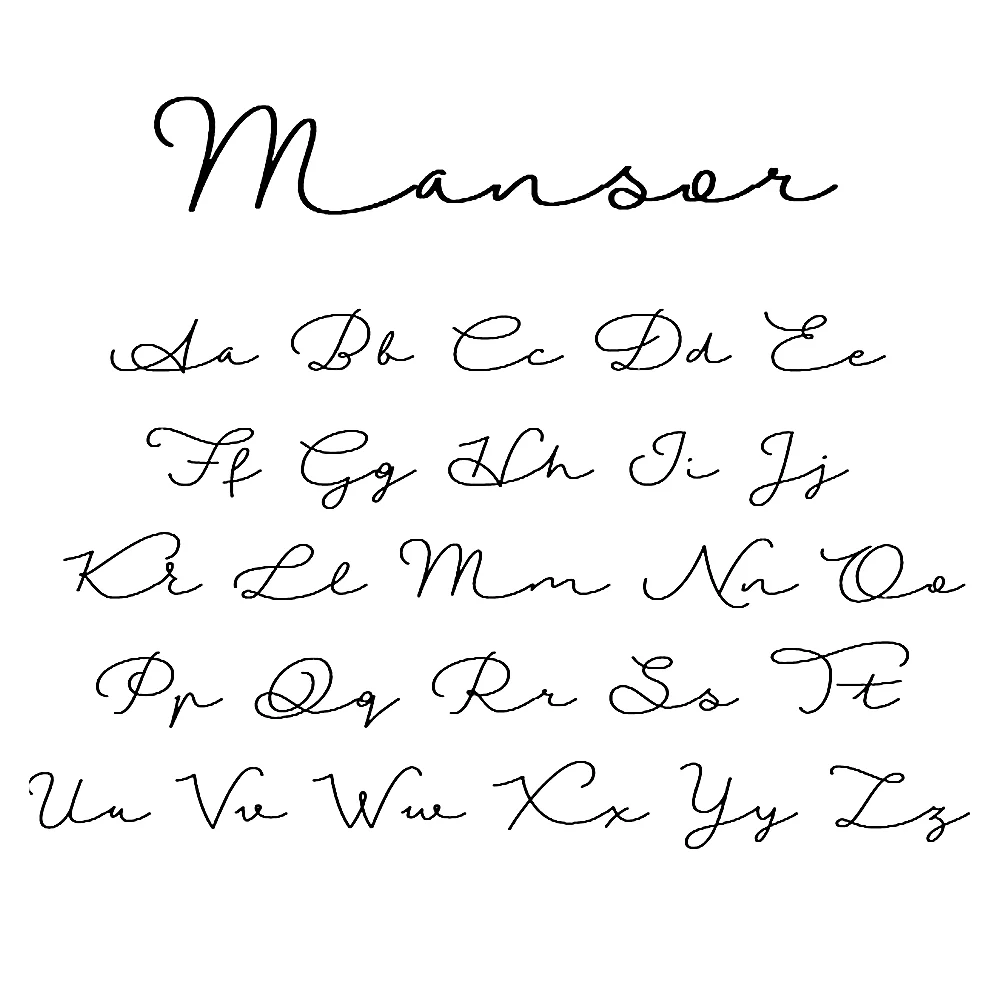 Mansor
Aa Bb Cc Dd Ee
Ff Gg Hh Ii Jj
Kk Ll Mm Nn Oo
Pp Qq Rr Ss Tt
Uu Vv Ww Xx Yy Zz